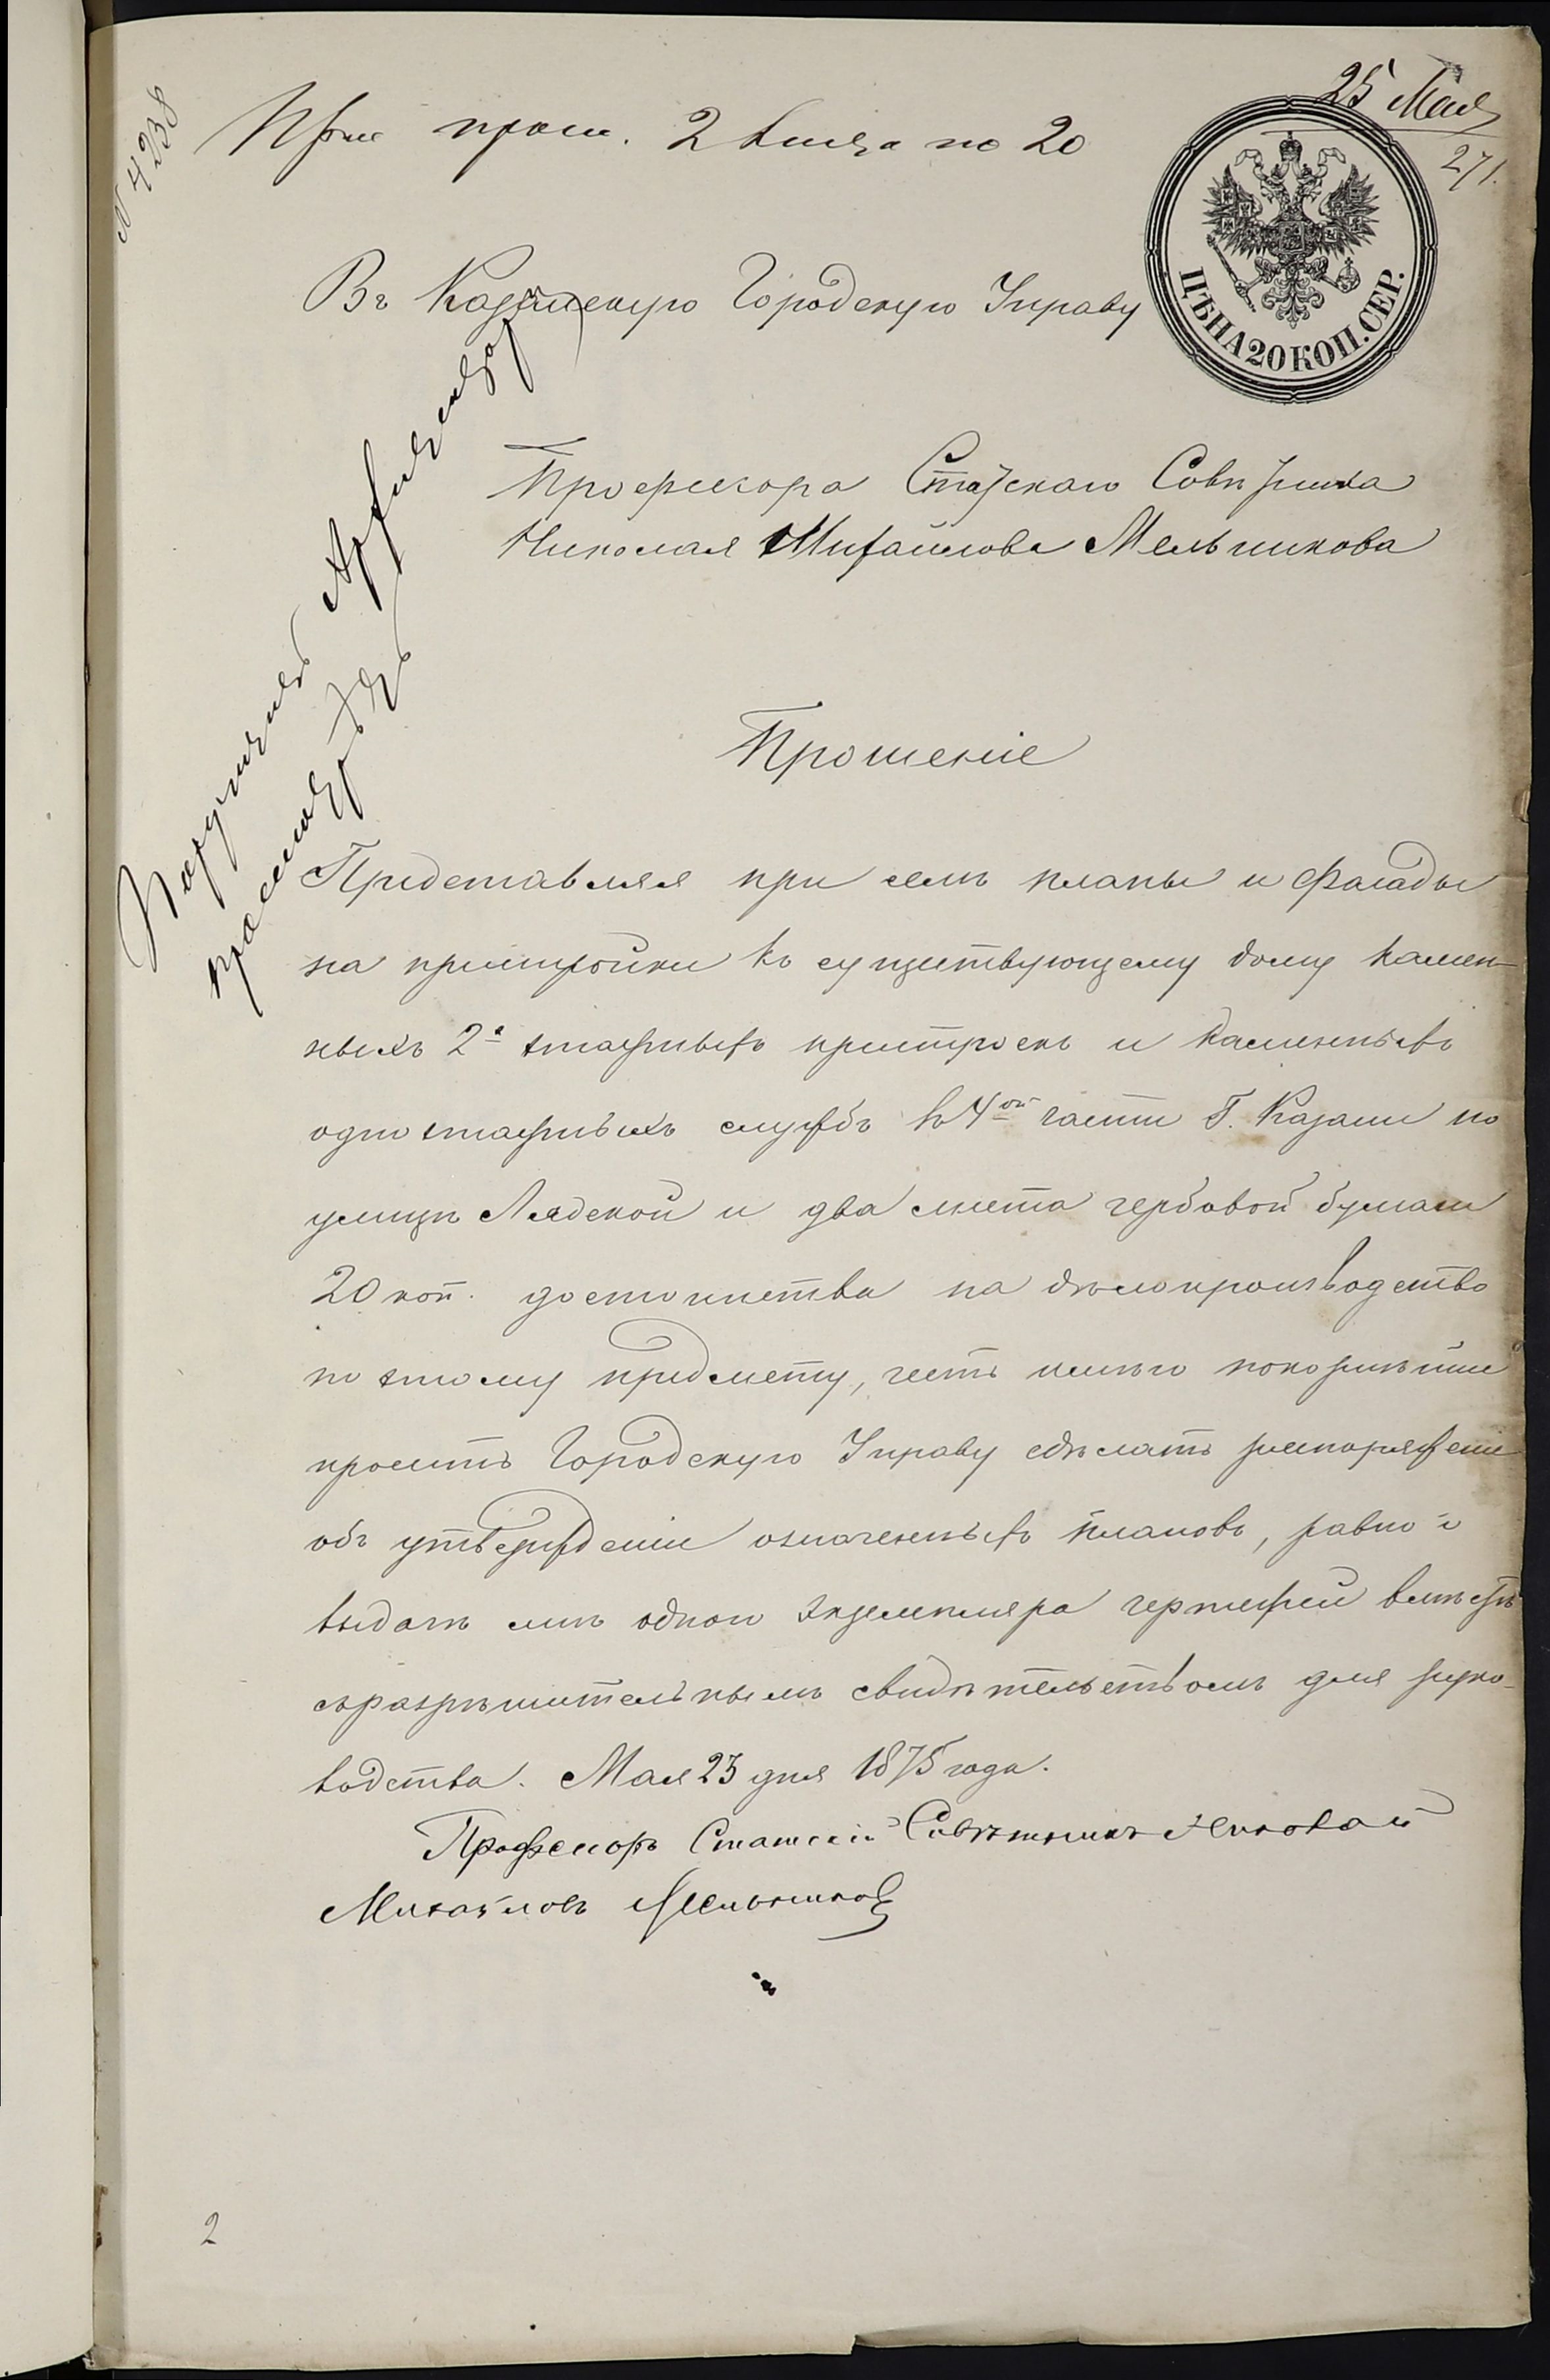 25 Мая
271.
N 4238
При прош. 2 листа по 20
ЦѢНА 20 КОП. СЕР.
Въ Казанскую Городскую Управу
Професора Статскаго Совѣтника
Николая Михайлова Мельникова
Прошеніе
Поручить Архитектору
Представляя при семъ планы и фасады
на пристройки къ существующему дому камен-
ныхъ 2х этажныхъ пристроекъ и каменныхъ
одноэтажныхъ службъ въ 4ой части Г. Казани по
улицѣ Лядской и два листа гербовой бумаги
20 коп. достоинства на дѣлопроизводство
по этому предмету, честь имѣю покорнѣйше
просить Городскую Управу сдѣлать распоряженіе
объ утвержденіи означенныхъ плановъ, равно и
выдать мнѣ одного экземпляра чертежей вмѣстѣ
съ разрѣшительнымъ свидѣтельствомъ для руко-
водства. Мая 23 дня 1875 года.
Профессоръ Статскій Совѣтникъ Николай
Михайловъ Мельниковъ
2